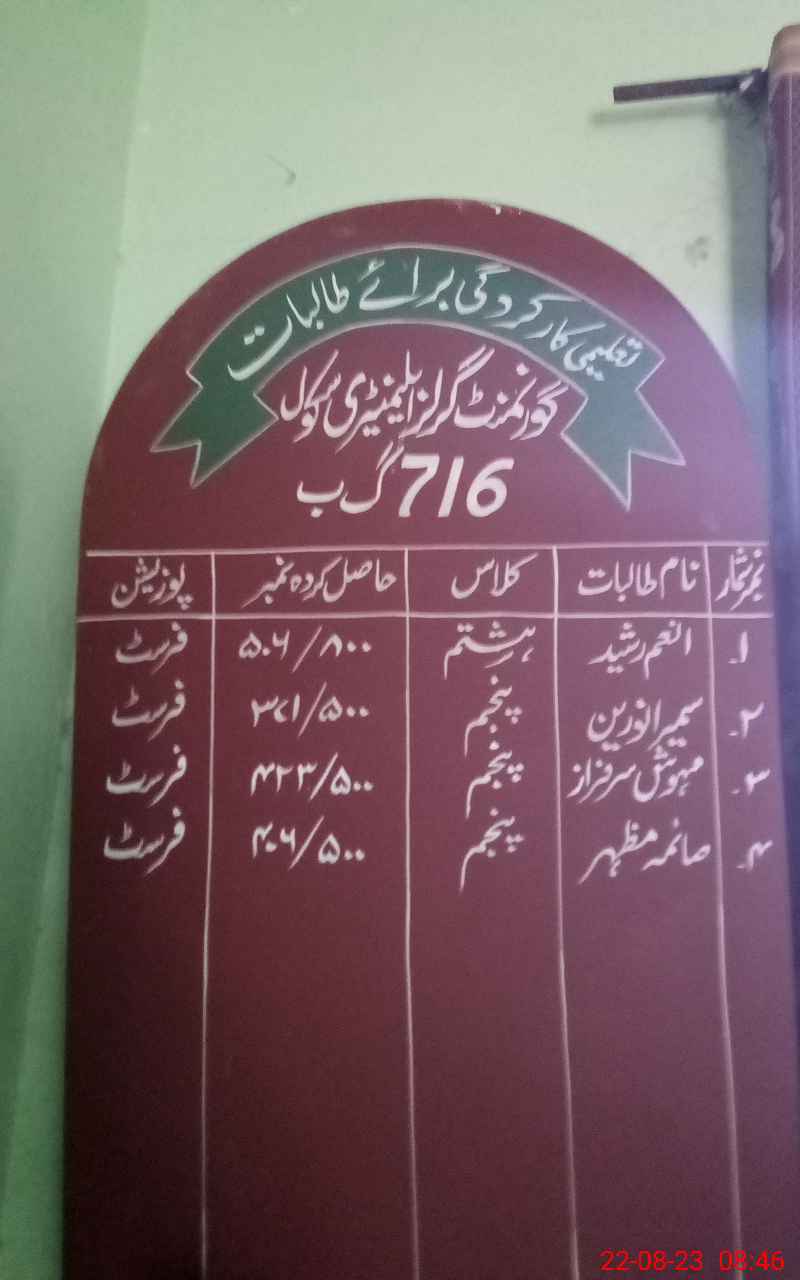 تعلیمی کارکردگی برائے طالبات
گورنمنٹ گرلز ایلیمنٹری سکول
716 گ ب
نمبر شمار نام طالبات کلاس حاصل کردہ نمبر پوزیشن
۱۔ انعم رشید ہشتم ۵۰۶/۸۰۰ فرسٹ
۲۔ سمیرا نورین پنجم ۳۷۱/۵۰۰ فرسٹ
۳۔ مہوش سرفراز پنجم ۴۲۳/۵۰۰ فرسٹ
۴۔ صائمہ مظہر پنجم ۴۰۶/۵۰۰ فرسٹ
22-08-23 08:46